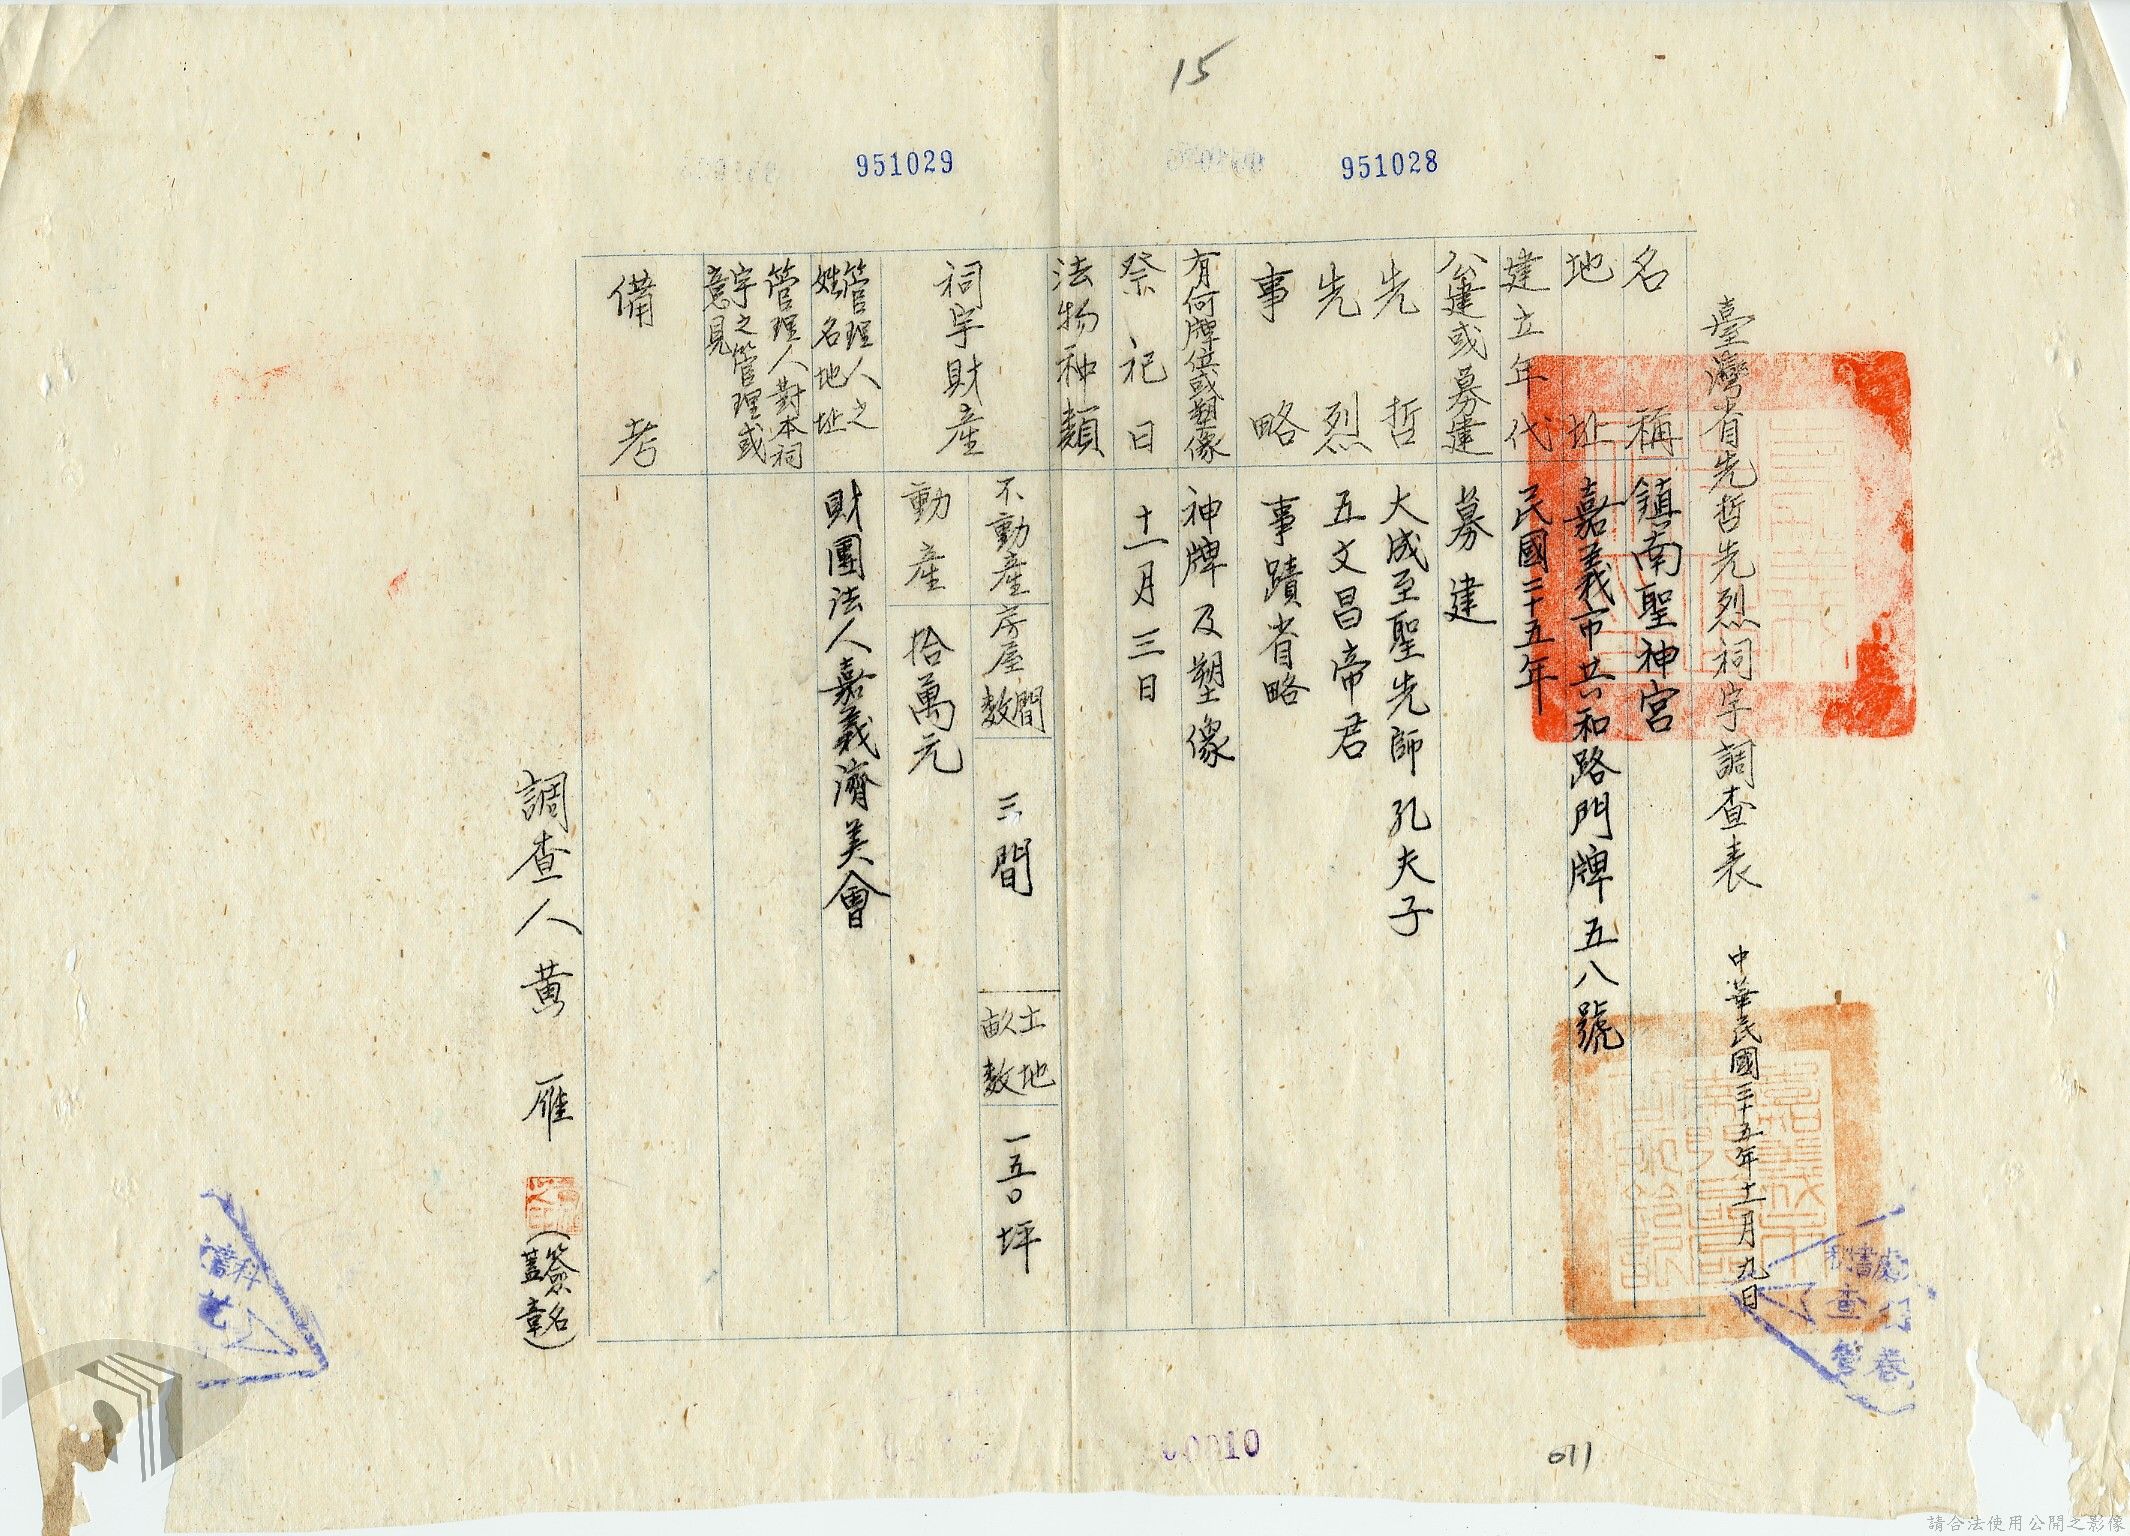 15
951028
951029
臺灣省先哲先烈祠宇調查表 中華民國三十五年十一月九日
名稱 鎮南聖神宮
地址 嘉義市共和路門牌五八號
建立年代 民國二十五年
公建或募建 募建
先哲 大成至聖先師孔夫子
先烈 五文昌帝君
事略 事蹟省略
有何牌位或塑像 神牌及塑像
祭祀日 十一月三日
法物種類
祠宇財產
不動產 房屋間數 三間 土地畝數 一五〇坪
動產 拾萬元
管理人之姓名地址 財團法人嘉義濟美會
管理人對本祠宇之管理或意見
備考
調查人 黃雁 (簽名蓋章)
00010
011
請合法使用公開之影像